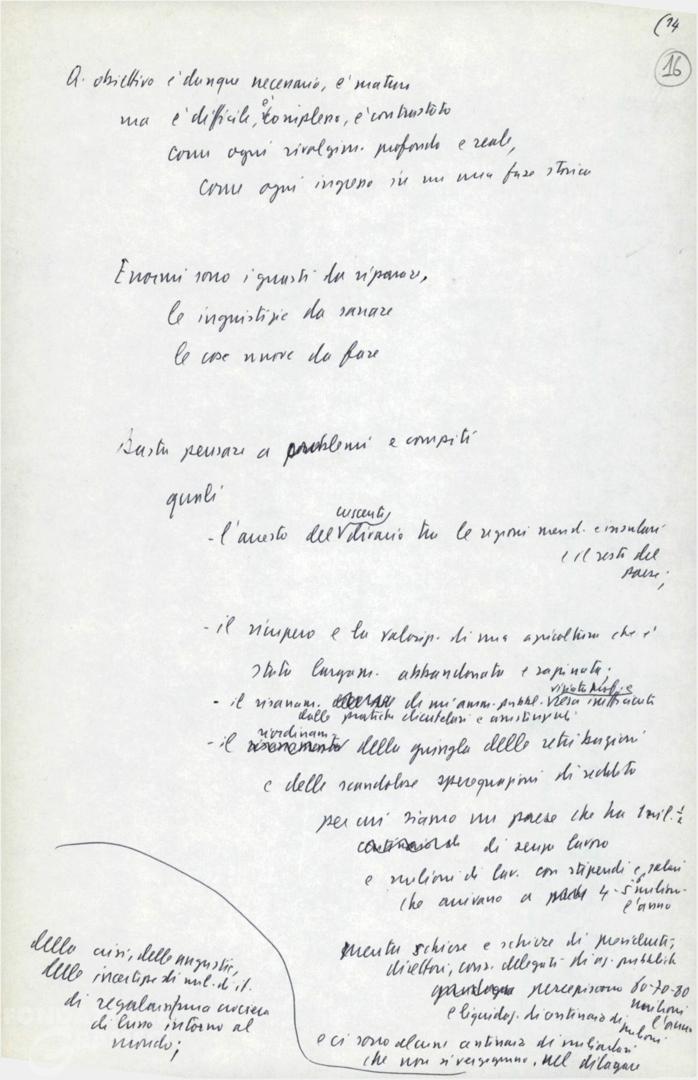 (14
16
Q. obiettivo è dunque necessario, è maturo
ma è difficile, è complesso, è contrastato
come ogni rivolgim. profondo e reale,
come ogni ingresso in una nuova fase storica
Enormi sono i guasti da riparare,
le ingiustizie da sanare
le cose nuove da fare
Basta pensare a problemi e compiti
quali
- l'arresto del crescente divario tra le regioni merid. e insulari
e il resto del
paese;
- il recupero e la valorizz. di una agricoltura che è
stata largam. abbandonata e rapinata;
- il risanam. di un'amm. pubbl. resa inefficiente
dalle pratiche clientelari e assistenziali
- il riordinam. della giungla delle retribuzioni
e delle scandalose sperequazioni di reddito
per cui siamo un paese che ha 1 mil. ½
di senza lavoro
e milioni di lav. con stipendi e salari
che arrivano a 4-5 milioni
l'anno
mentre schiere e schiere di presidenti,
direttori, cons. delegati di az. pubbliche
percepiscono 60-70-80
milioni
l'anno
e liquidaz. di centinaia di milioni
e ci sono alcune centinaia di miliardari
che non si vergognano, nel dilagare
della crisi, delle angustie,
delle incertezze di mil. di it.
di regalarsi una crociera
di lusso intorno al
mondo;